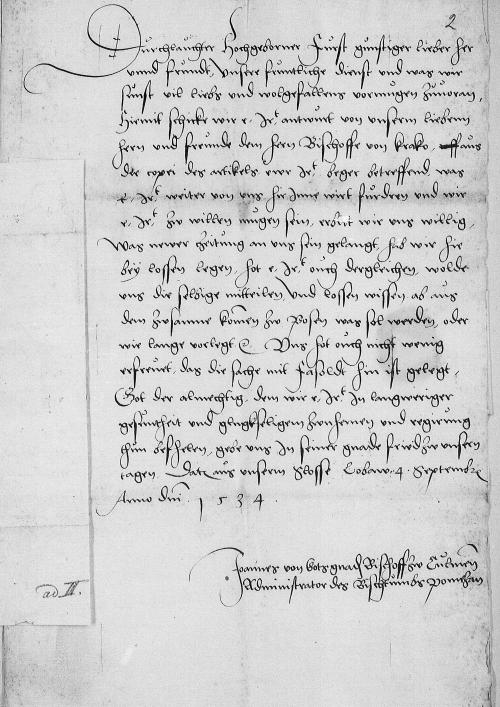 2
Durchlauchter Hochgeborner Furst gunstiger lieber her
unnd freundt, Unsere fruntliche dienst und was wir
sunst vil liebs und wolgefallens vormugen zuvoran,
Hiemit schicke wir e. Irt antwurt von unserm liebenn
hern und freunde dem hern Bischoffe von krako, aus
der copei des artikels ewr Irt beger betreffend, was
e. Irt weiter von uns hir Inne wirt furdren und wir
e. Irt zw willen mugen sein, erbut wir uns willig,
Was newer zeitung an uns sein gelangt, hab wir hie
bey lossen legen, hot e. Irt ouch dergleichen, wolde
uns die selbige mitteilen, Und lossen wissen ab aus
dem zusamne komen zw Posen was sol werden, oder
wie lange vorlegt &. Uns hot ouch nicht wenig
erfreuet, das die sache mit Fasoldt hin ist gelegt,
Got der almechtig, dem wir e. Irt In langweriger
gesuntheit und glugkseligem zunhemen und regirung
thun befhelen, gebe uns In seiner gnade fried zw unsern
tagen. Datz aus unserm Slosse Lobaw. 4. Septembr
Anno dni 1534.
Joannes von Gots gnad Bischoff zw Culmen
Administrator des Bischtumbs Pomezan
ad II.